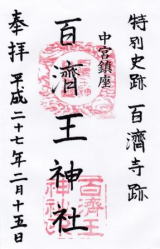 特別史跡 百濟寺跡
中宮鎮座
百濟王神社
奉拝 平成二十七年二月十五日
百濟王神社